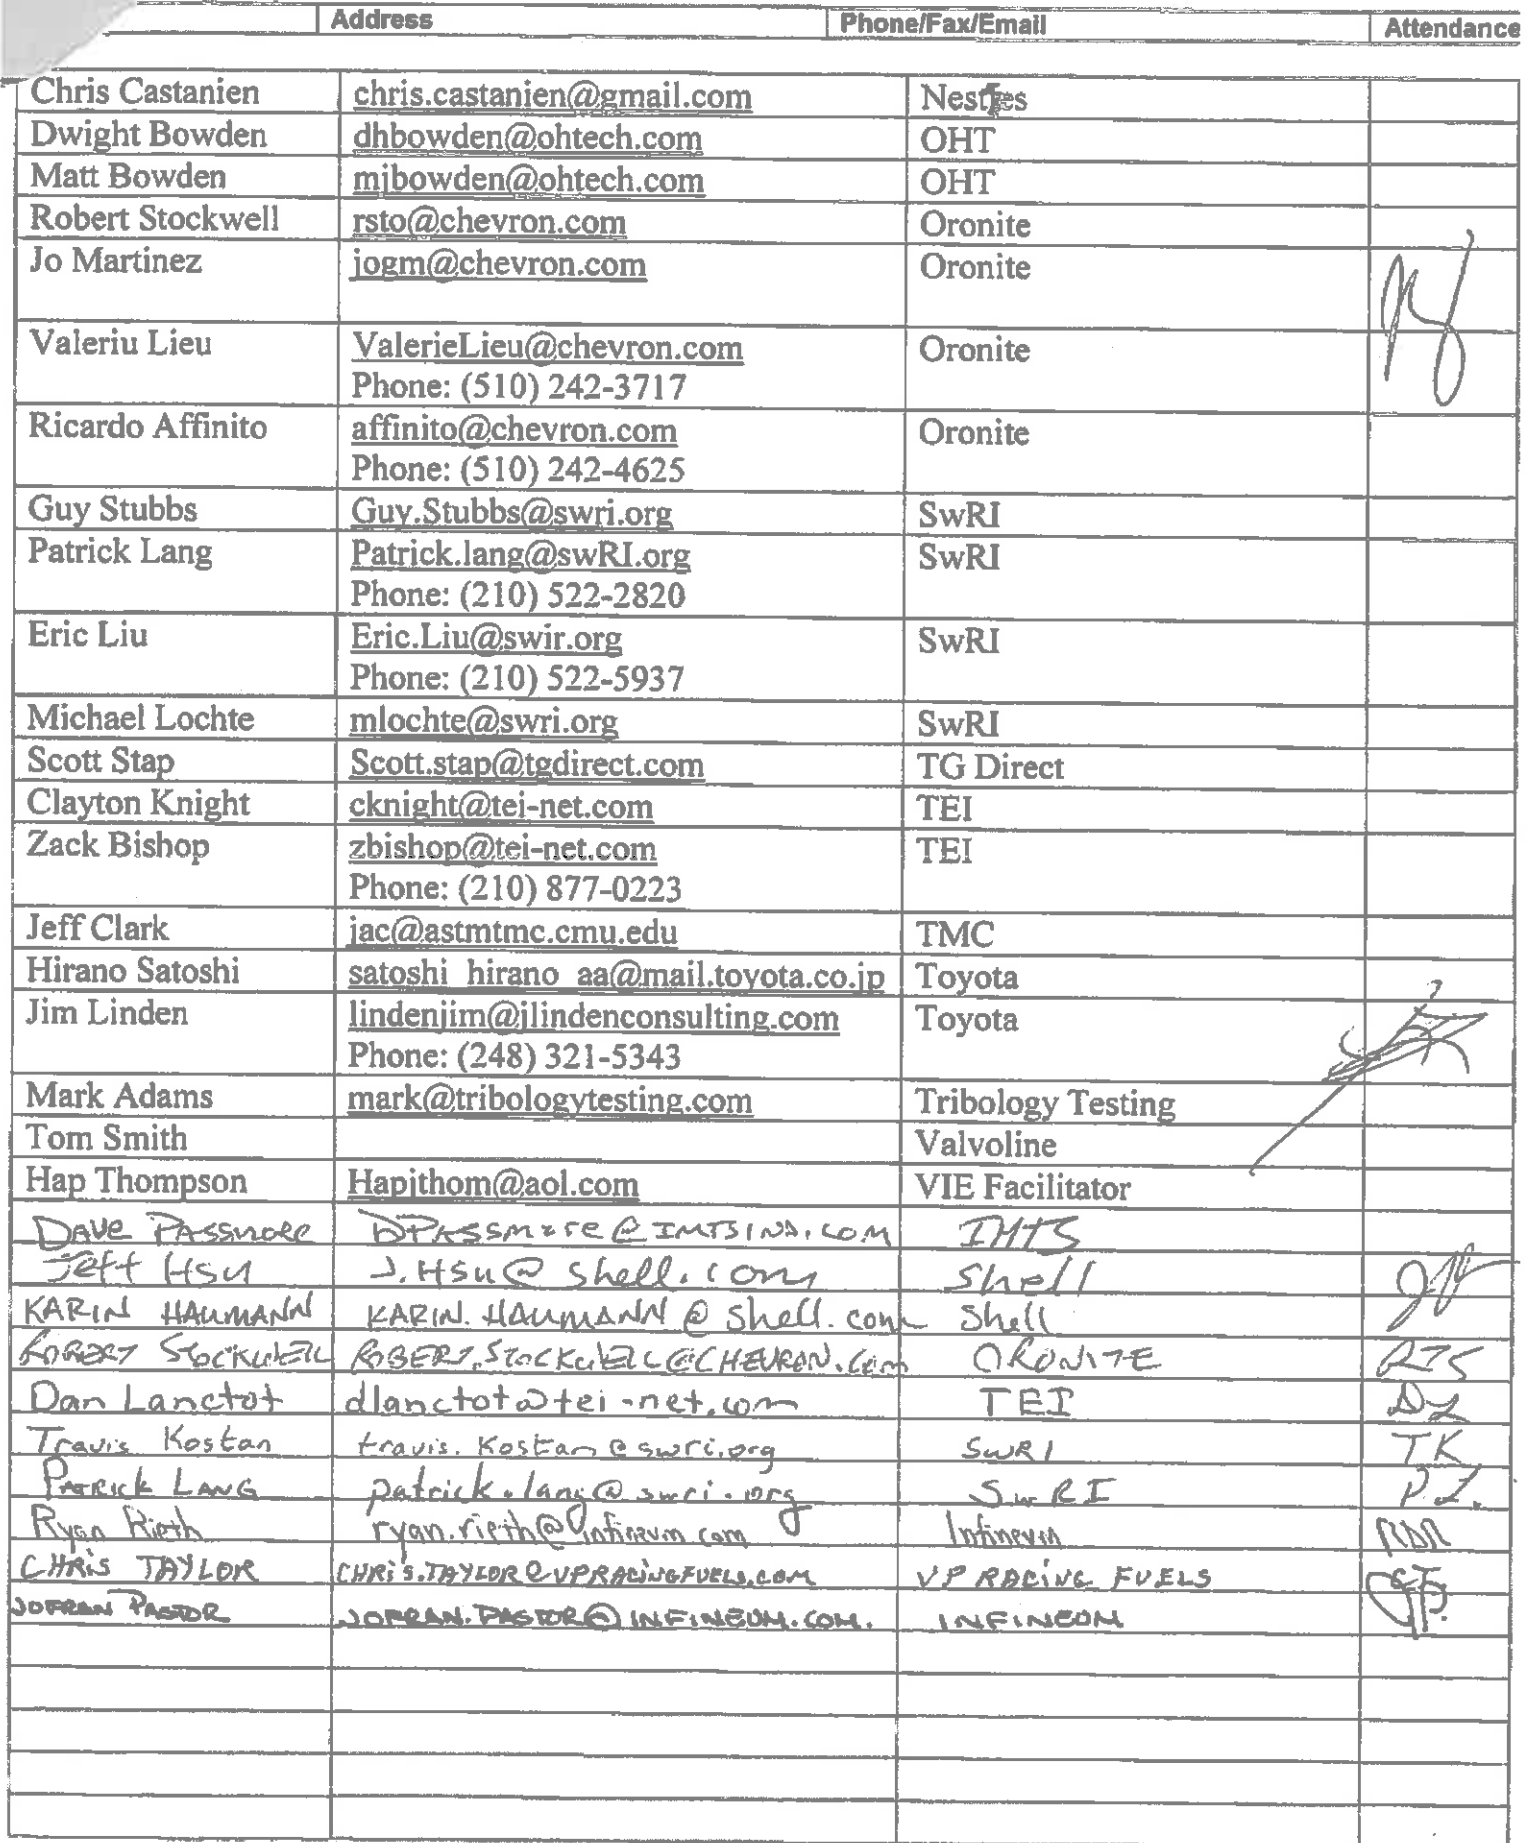 Address Phone/Fax/Email Attendance
Chris Castanien chris.castanien@gmail.com
Dwight Bowden dhbowden@ohtech.com OHT
Matt Bowden mjbowden@ohtech.com OHT
Robert Stockwell rsto@chevron.com Oronite
Jo Martinez jogm@chevron.com Oronite
Valeriu Lieu ValerieLieu@chevron.com Oronite
Phone: (510) 242-3717
Ricardo Affinito affinito@chevron.com Oronite
Phone: (510) 242-4625
Guy Stubbs Guy.Stubbs@swri.org SwRI
Patrick Lang Patrick.lang@swRI.org SwRI
Phone: (210) 522-2820
Eric Liu Eric.Liu@swir.org SwRI
Phone: (210) 522-5937
Michael Lochte mlochte@swri.org SwRI
Scott Stap Scott.stap@tgdirect.com TG Direct
Clayton Knight cknight@tei-net.com TEI
Zack Bishop zbishop@tei-net.com TEI
Phone: (210) 877-0223
Jeff Clark jac@astmtmc.cmu.edu TMC
Hirano Satoshi satoshi_hirano_aa@mail.toyota.co.jp Toyota
Jim Linden lindenjim@jlindenconsulting.com Toyota
Phone: (248) 321-5343
Mark Adams mark@tribologytesting.com Tribology Testing
Tom Smith Valvoline
Hap Thompson Hapjthom@aol.com VIE Facilitator
DAVE PASSMORE DPASSmore@IMTSIND.COM IMTS
Jeff HSu J.HSu@shell.com Shell
KARIN HAUMANN KARIN.HAUMANN@shell.com Shell
ROBERT STOCKWELL ROBERT.STOCKWELL@CHEVRON.Com ORONITE RTS
Dan Lanctot dlanctot@tei-net.com TEI DL
Travis Kostan travis.kostan@swri.org SwRI TK
PATRICK LANG patrick.lang@swri.org SwRI P.L.
Ryan Rieth ryan.rieth@infineum.com Infineum RDR
CHRIS TAYLOR CHRIS.TAYLOR@VPRACINGFUELS.COM VP RACING FUELS
JOFRAN PASTOR JOFRAN.PASTOR@INFINEUM.COM. INFINEUM